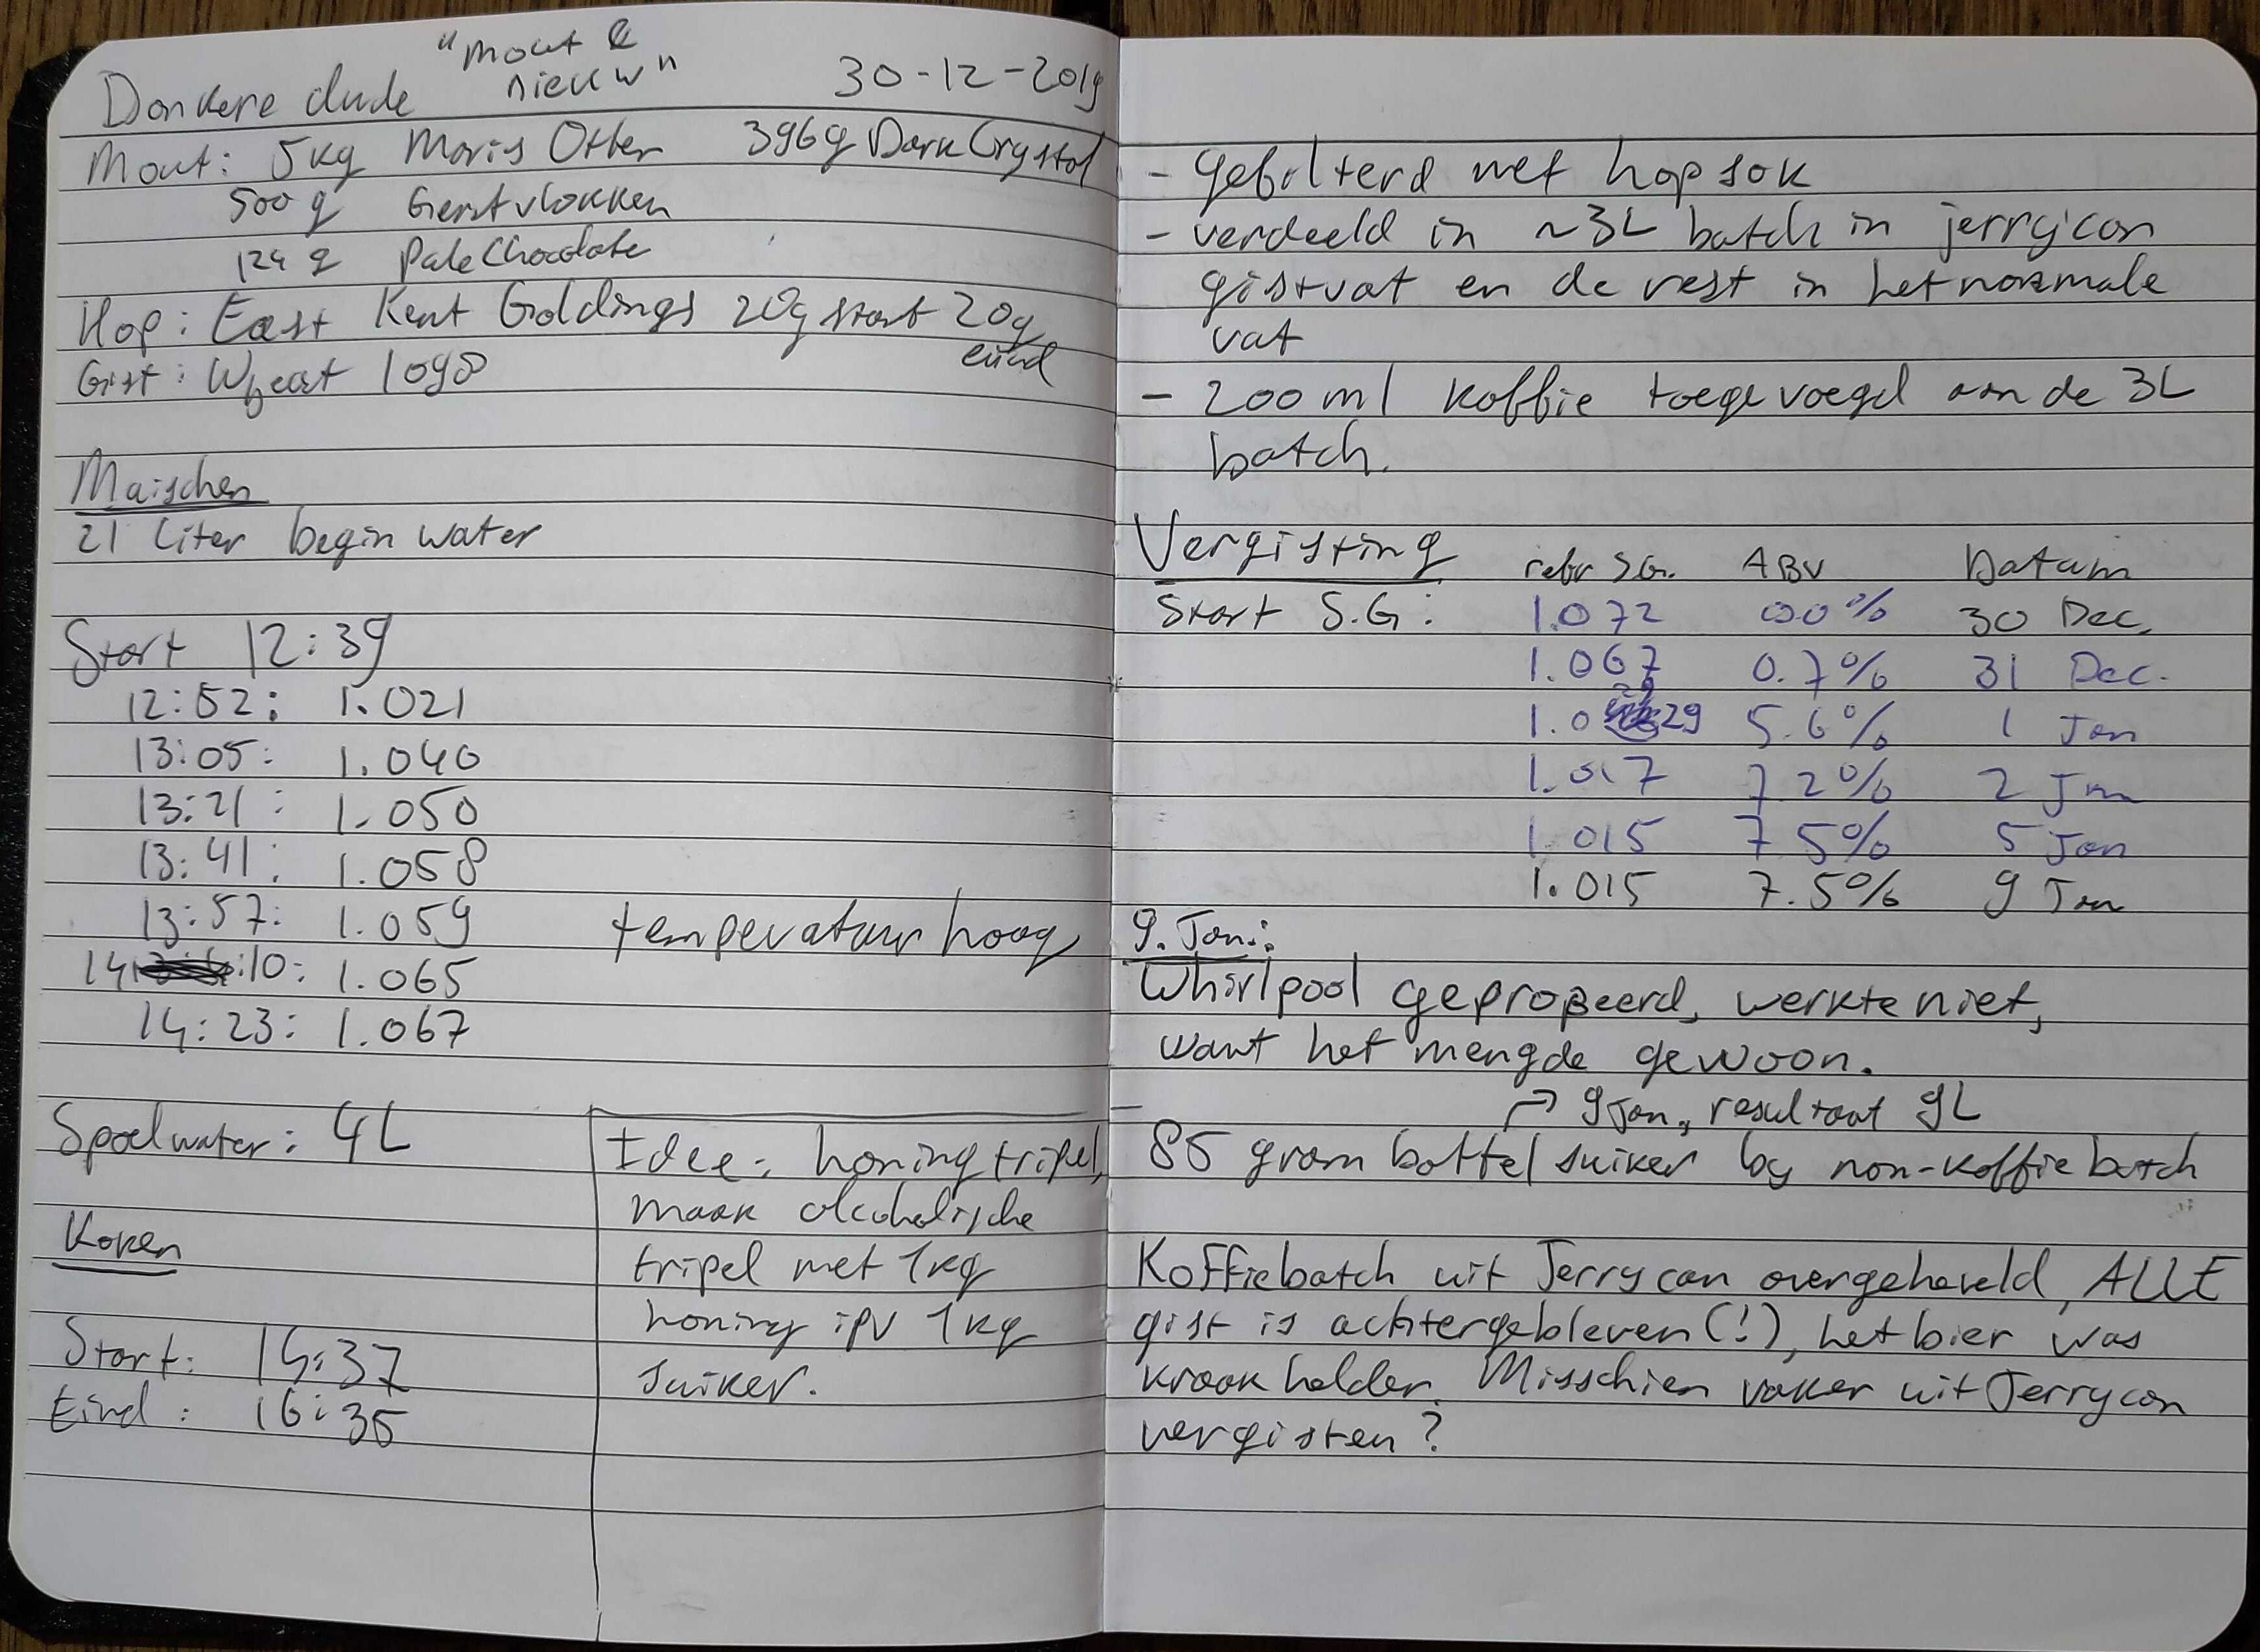 "Mout &
nieuw"
Donkere dude 30-12-2019
Mout: 5kg Maris Otter 396g Dark Crystal
500 g Gerstvlokken
124 g Pale Chocolate
Hop: East Kent Goldings 20g start 20g
eind
Gist: Wyeast 1098
Maischen
21 Liter begin water
Start 12:39
12:52: 1.021
13:05: 1.040
13:21: 1.050
13:41: 1.058
13:57: 1.059 temperatuur hoog
14:10: 1.065
14:23: 1.067
Spoelwater: 4L
Koken
Start: 14:37
Eind: 16:35
Idee: honing tripel,
maak alcoholische
tripel met 1kg
honing ipv 1kg
suiker.
- Gefilterd met hopsok
- verdeeld in ~3L batch in jerrycan
gistvat en de rest in het normale
vat
- 200ml koffie toegevoegd aan de 3L
batch.
Vergisting refr S.G. ABV Datum
Start S.G: 1.072 0.0% 30 Dec.
1.067 0.7% 31 Dec.
1.029 5.6% 1 Jan
1.017 7.2% 2 Jan
1.015 7.5% 5 Jan
1.015 7.5% 9 Jan
9. Jan:
Whirlpool geprobeerd, werkte niet,
want het mengde gewoon.
→ 9 Jan, resultaat 9L
85 gram bottelsuiker by non-koffie batch
Koffiebatch uit Jerrycan overgeheveld, ALLE
gist is achtergebleven(!), het bier was
kraakhelder. Misschien vaker uit Jerrycan
vergisten?